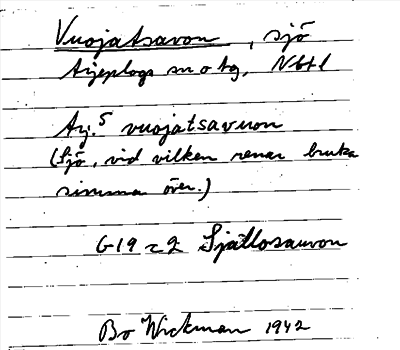 Vuojatsavon, sjö
Arjeplogs sn o tg, Nbtl
Arj.5 vuojatsavuon
(Sjö, vid vilken renar bruka
simma över.)
G19 c2 Sjättosauvon
Bo Wickman 1942